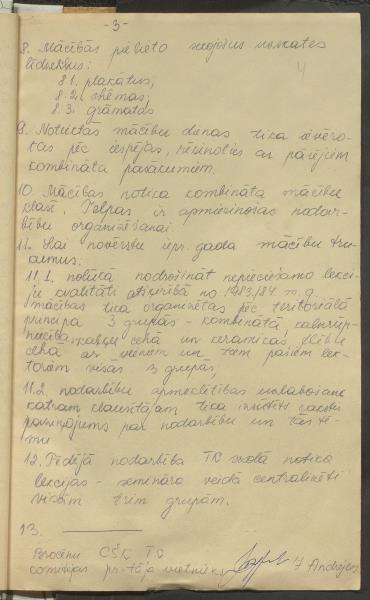 -3-
8. Mācībās pielieto sekojošus uzskates
līdzekļus:
8.1. plakātus,
8.2. shēmas,
8.3. grāmatas
9. Noteiktās mācību dienas tika ievēro-
tas pēc iespējas, rēķinoties ar pārējiem
kombināta pasākumiem.
10. Mācības notika kombināta mācību
klasē. Telpas ir apmierinošas nodar-
bību organizēšanai.
11. Lai novērstu iepr. gada mācību trū-
kumus:
11.1. nolūkā nodrošināt nepieciešamo lekci-
ju kvalitāti atšķirībā no 1983./84. m.g.
mācības tika organizētas pēc teritoriālā
principa 3 grupās - kombinātā,
cehā un keramikas,
cehā ar vieniem un tiem pašiem lek-
toriem visās 3 grupās,
11.2. nodarbību apmeklētības uzlabošanai
katram klausītājam tika
paziņojums par nodarbību un tās tē-
mu
12. Pēdējā nodarbība notika
lekcijas - semināra veidā centralizēti
visām trim grupām.
13.
Brocēnu CŠK
komitejas pr-tāja vietnieks